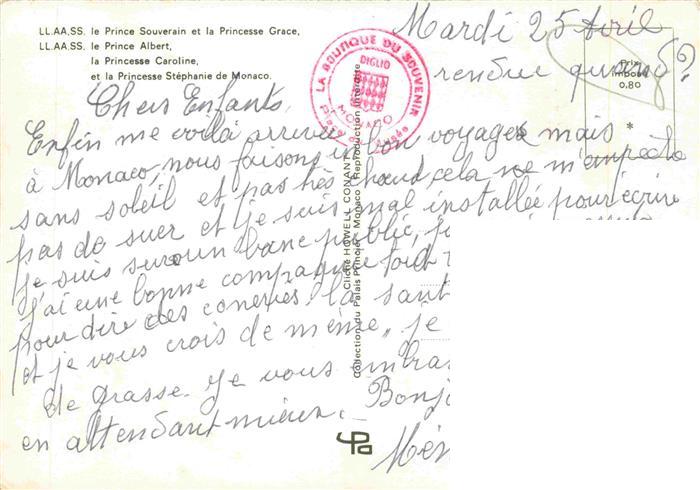 LL.AA.SS. le Prince Souverain et la Princesse Grace,
LL.AA.SS. le Prince Albert,
la Princesse Caroline,
et la Princesse Stéphanie de Monaco.
Mardi 25 Avril
rendue
Prix
imposé
0.80
LA BOUTIQUE DU SOUVENIR
DIGLIO
MONACO
Chers Enfants,
Enfin me voilà arrivée bon voyages mais
à Monaco, nous faisons un
sans soleil et pas très chaud, cela ne m'empeche
pas de suer et je suis mal installée pour écrire
je suis sur un banc public,
j'ai une bonne compagnie tout
pour dire des coneries la sant
et je vous crois de même, je
de grasse. Je vous embra
en attendant mieux. Bonj
Mém
Cliché HOWELL CONANT
Collection du Palais Princier - Monaco - Reproduction Interdite